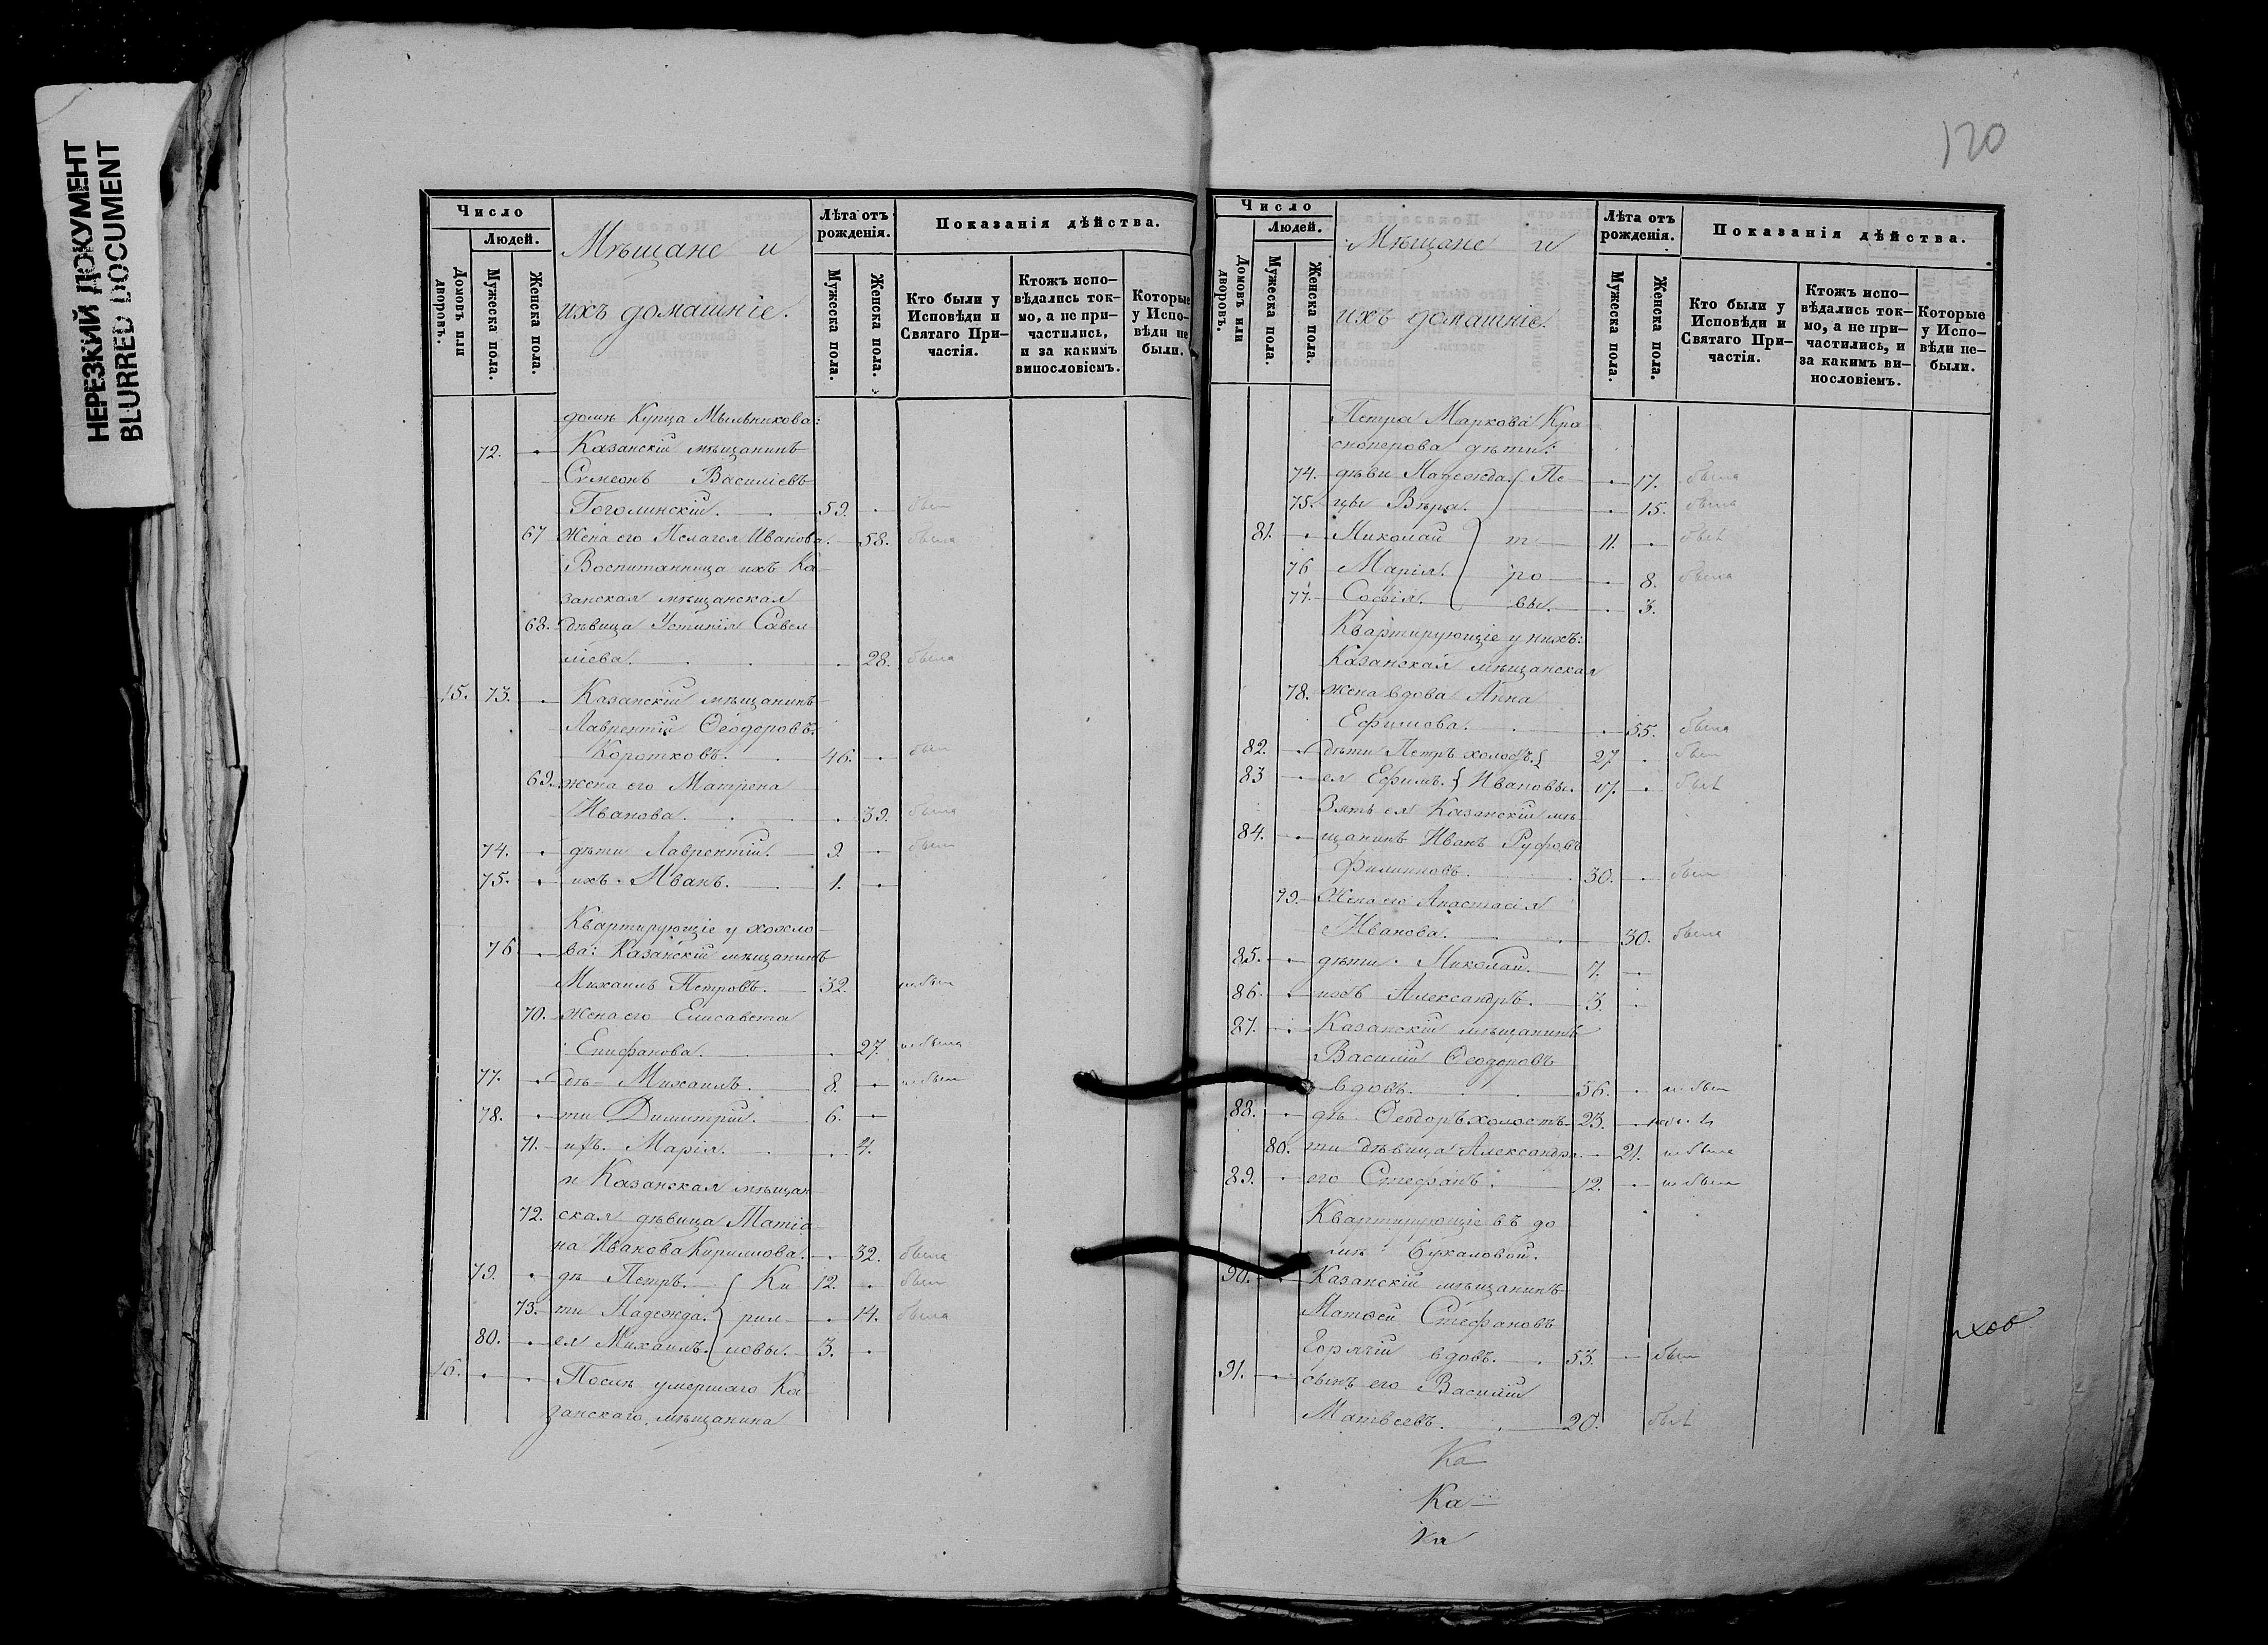 НЕРЕЗКИЙ ДОКУМЕНТ
BLURRED DOCUMENT
Число
Людей.
Домовъ или дворовъ.
Мужеска пола.
Женска пола.
Мѣщане и
ихъ домашніе.
Лѣта отъ рожденія.
Мужеска пола.
Женска пола.
Показанія дѣйства.
Кто были у Исповѣди и Святаго При-частія.
Ктожъ испо-вѣдались ток-мо, а не при-частились, и за какимъ винословіемъ.
Которые у Испо-вѣди не были.
домѣ Купца Мыльникова:
72. Казанскій мѣщанинъ
Сѵмеонъ Василіевъ
Гоголинскій. 59. былъ
67 Жена его Пелагея Иванова. 58. была
Воспитанница ихъ Ка-
занская мѣщанская
68. дѣвица Устинія Савел
ліева. 28. была
15. 73. Казанскій мѣщанинъ
Лаврентій Ѳеодоровъ
Коротковъ. 46. былъ
69. жена его Матрена
Иванова. 39. была
74. дѣти Лаврентій. 9. былъ
75. ихъ Иванъ. 1.
Квартирующіе у Хохло-
76 ва: Казанскій мѣщанинъ
Михаилъ Петровъ. 32. не былъ
70. Жена его Елисавета
Епифанова. 27. не была
77. дѣ- Михаилъ. 8. не былъ
78. ти Димитрій. 6.
71. ихъ. Марія. 4.
и Казанская мѣщан
72. ская дѣвица Татіа-
на Иванова Кириллова. 32. была
79. дѣ Петръ. Ки 12. былъ
73. ти Надежда. рил 14. была
80. ея Михаилъ. ловы. 3.
16. Послѣ умершаго Ка
занскаго мѣщанина
120
Число
Людей.
Домовъ или дворовъ.
Мужеска пола.
Женска пола.
Мѣщане и
ихъ домашніе.
Лѣта отъ рожденія.
Мужеска пола.
Женска пола.
Показанія дѣйства.
Кто были у Исповѣди и Святаго При-частія.
Ктожъ испо-вѣдались ток-мо, а не при-частились, и за какимъ ви-нословіемъ.
Которые у Испо-вѣди не-были.
Петра Маркова Кра
сноперова дѣти:
74. дѣви Надежда. Пе 17. была
75. цы Вѣра. 15. была
81. Николай т 11. былъ
76 Марія. ро 8. была
77. Софія. вы. 3.
Квартирующіе у нихъ:
Казанская мѣщанская
78. жена вдова Анна
Ефимова. 55. была
82. дѣти Петръ холос. 27 былъ
83 ея Ефимъ. Ивановы. 17. былъ
Зять ея Казанскій мѣ-
84. щанинъ Иванъ Руфовъ
Филиповъ. 30. былъ
79. Жена его Анастасія
Иванова. 30. была
85. дѣти Николай. 7.
86. ихъ Александръ. 3.
87. Казанскій мѣщанинъ
Василій Ѳеодоровъ
вдовъ. 56. не былъ
88. дѣ Ѳеодоръ холостъ 23.
80. ти дѣвица Александра. 21. не была
89. его Стефанъ. 12. не былъ
Квартирующіе въ до
мѣ
90. Казанскій мѣщанинъ
Матѳей Стефановъ
вдовъ. 53. былъ
91. сынъ его Василій
Матвеевъ. 20. былъ
Ка
Ка
Ка